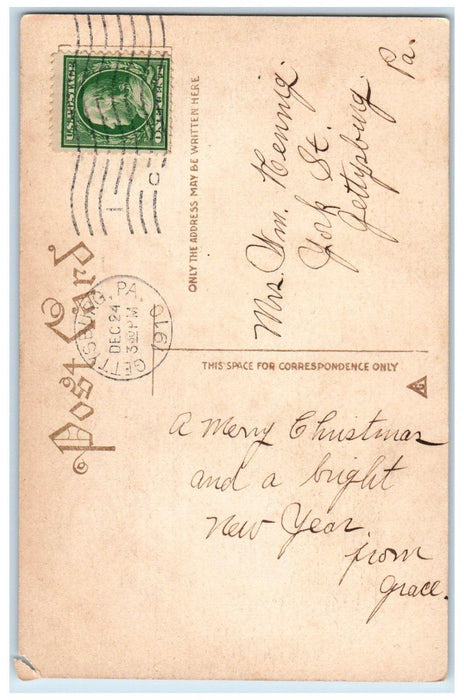 U.S. POSTAGE
ONE CENT
GETTYSBURG, PA.
DEC 24
3 30 PM
1910
Post Card
ONLY THE ADDRESS MAY BE WRITTEN HERE
Mrs. Wm. Hennig
York St.
Gettysburg
Pa.
THIS SPACE FOR CORRESPONDENCE ONLY
A Merry Christmas
and a bright
New Year.
from
Grace.